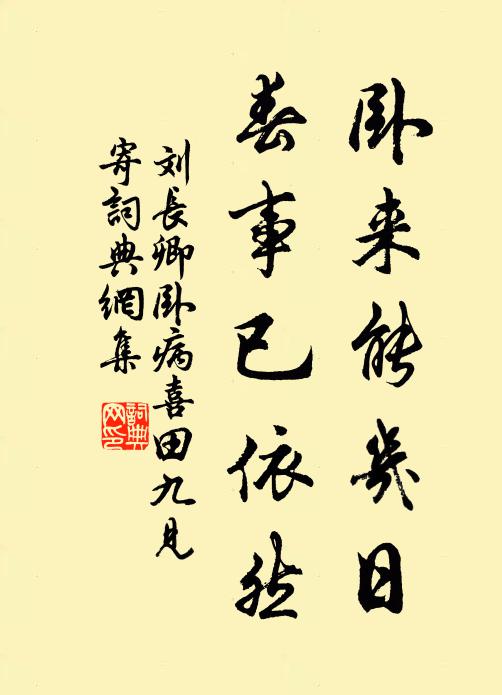 卧来能几日
春事已依然
刘長卿卧病喜田九見
寄詞典網集
詞典网印